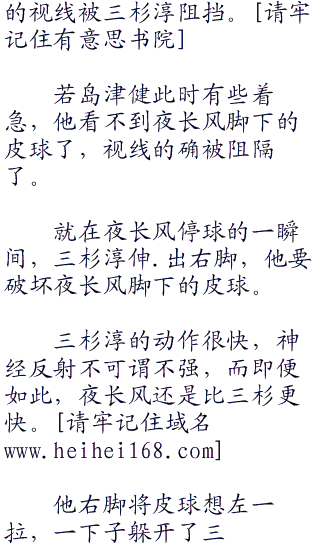 的视线被三杉淳阻挡。[请牢
记住有意思书院]
若岛津健此时有些着
急，他看不到夜长风脚下的
皮球了，视线的确被阻隔
了。
就在夜长风停球的一瞬
间，三杉淳伸.出右脚，他要
破坏夜长风脚下的皮球。
三杉淳的动作很快，神
经反射不可谓不强，而即便
如此，夜长风还是比三杉更
快。[请牢记住域名
www.heihei168.com]
他右脚将皮球想左一
拉，一下子躲开了三